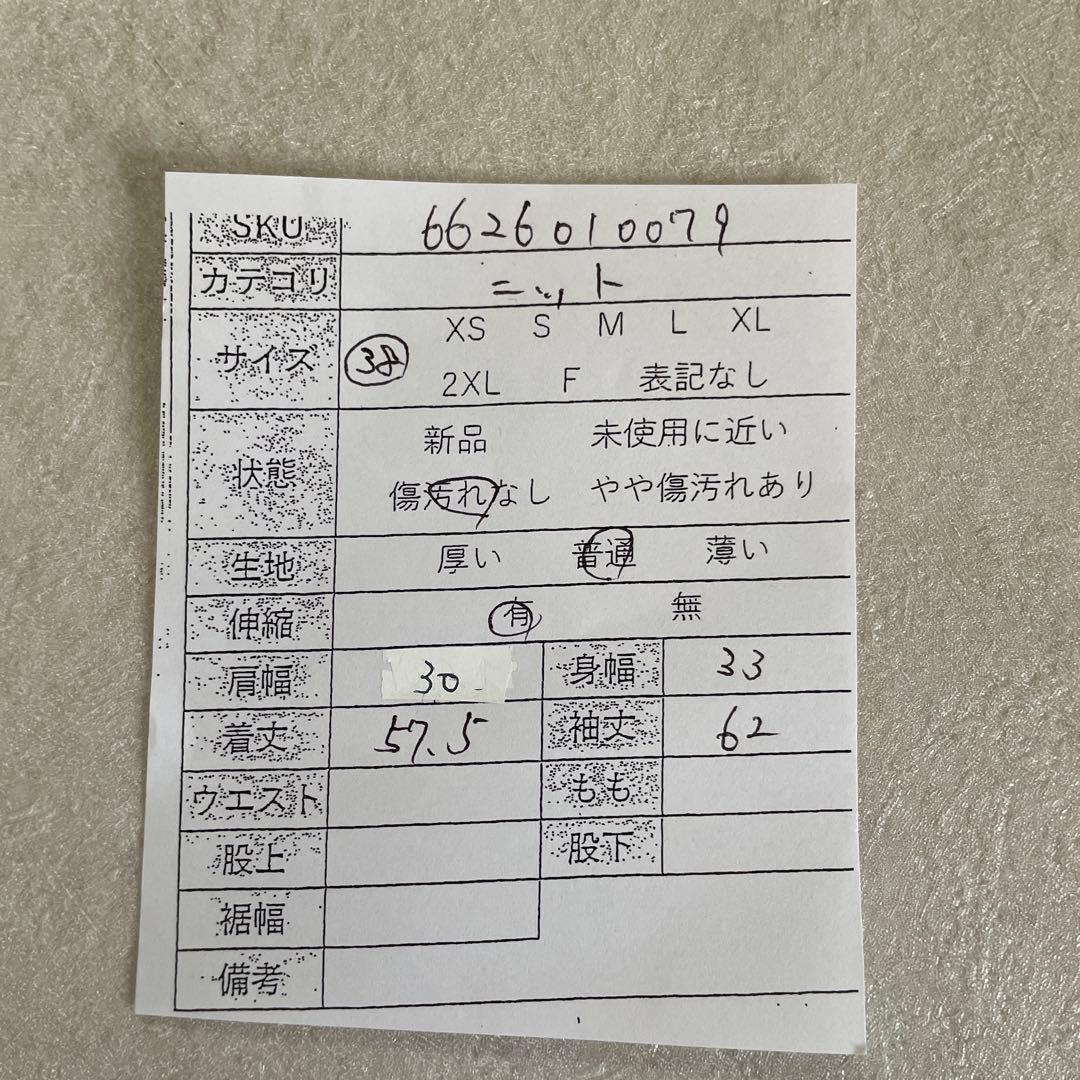 SKU 6626010079
カテゴリ ニット
XS S M L XL
サイズ 38
2XL F 表記なし
新品 未使用に近い
状態
傷汚れなし やや傷汚れあり
生地 厚い 普通 薄い
伸縮 有 無
肩幅 30 身幅 33
着丈 57.5 袖丈 62
ウエスト もも
股上 股下
裾幅
備考